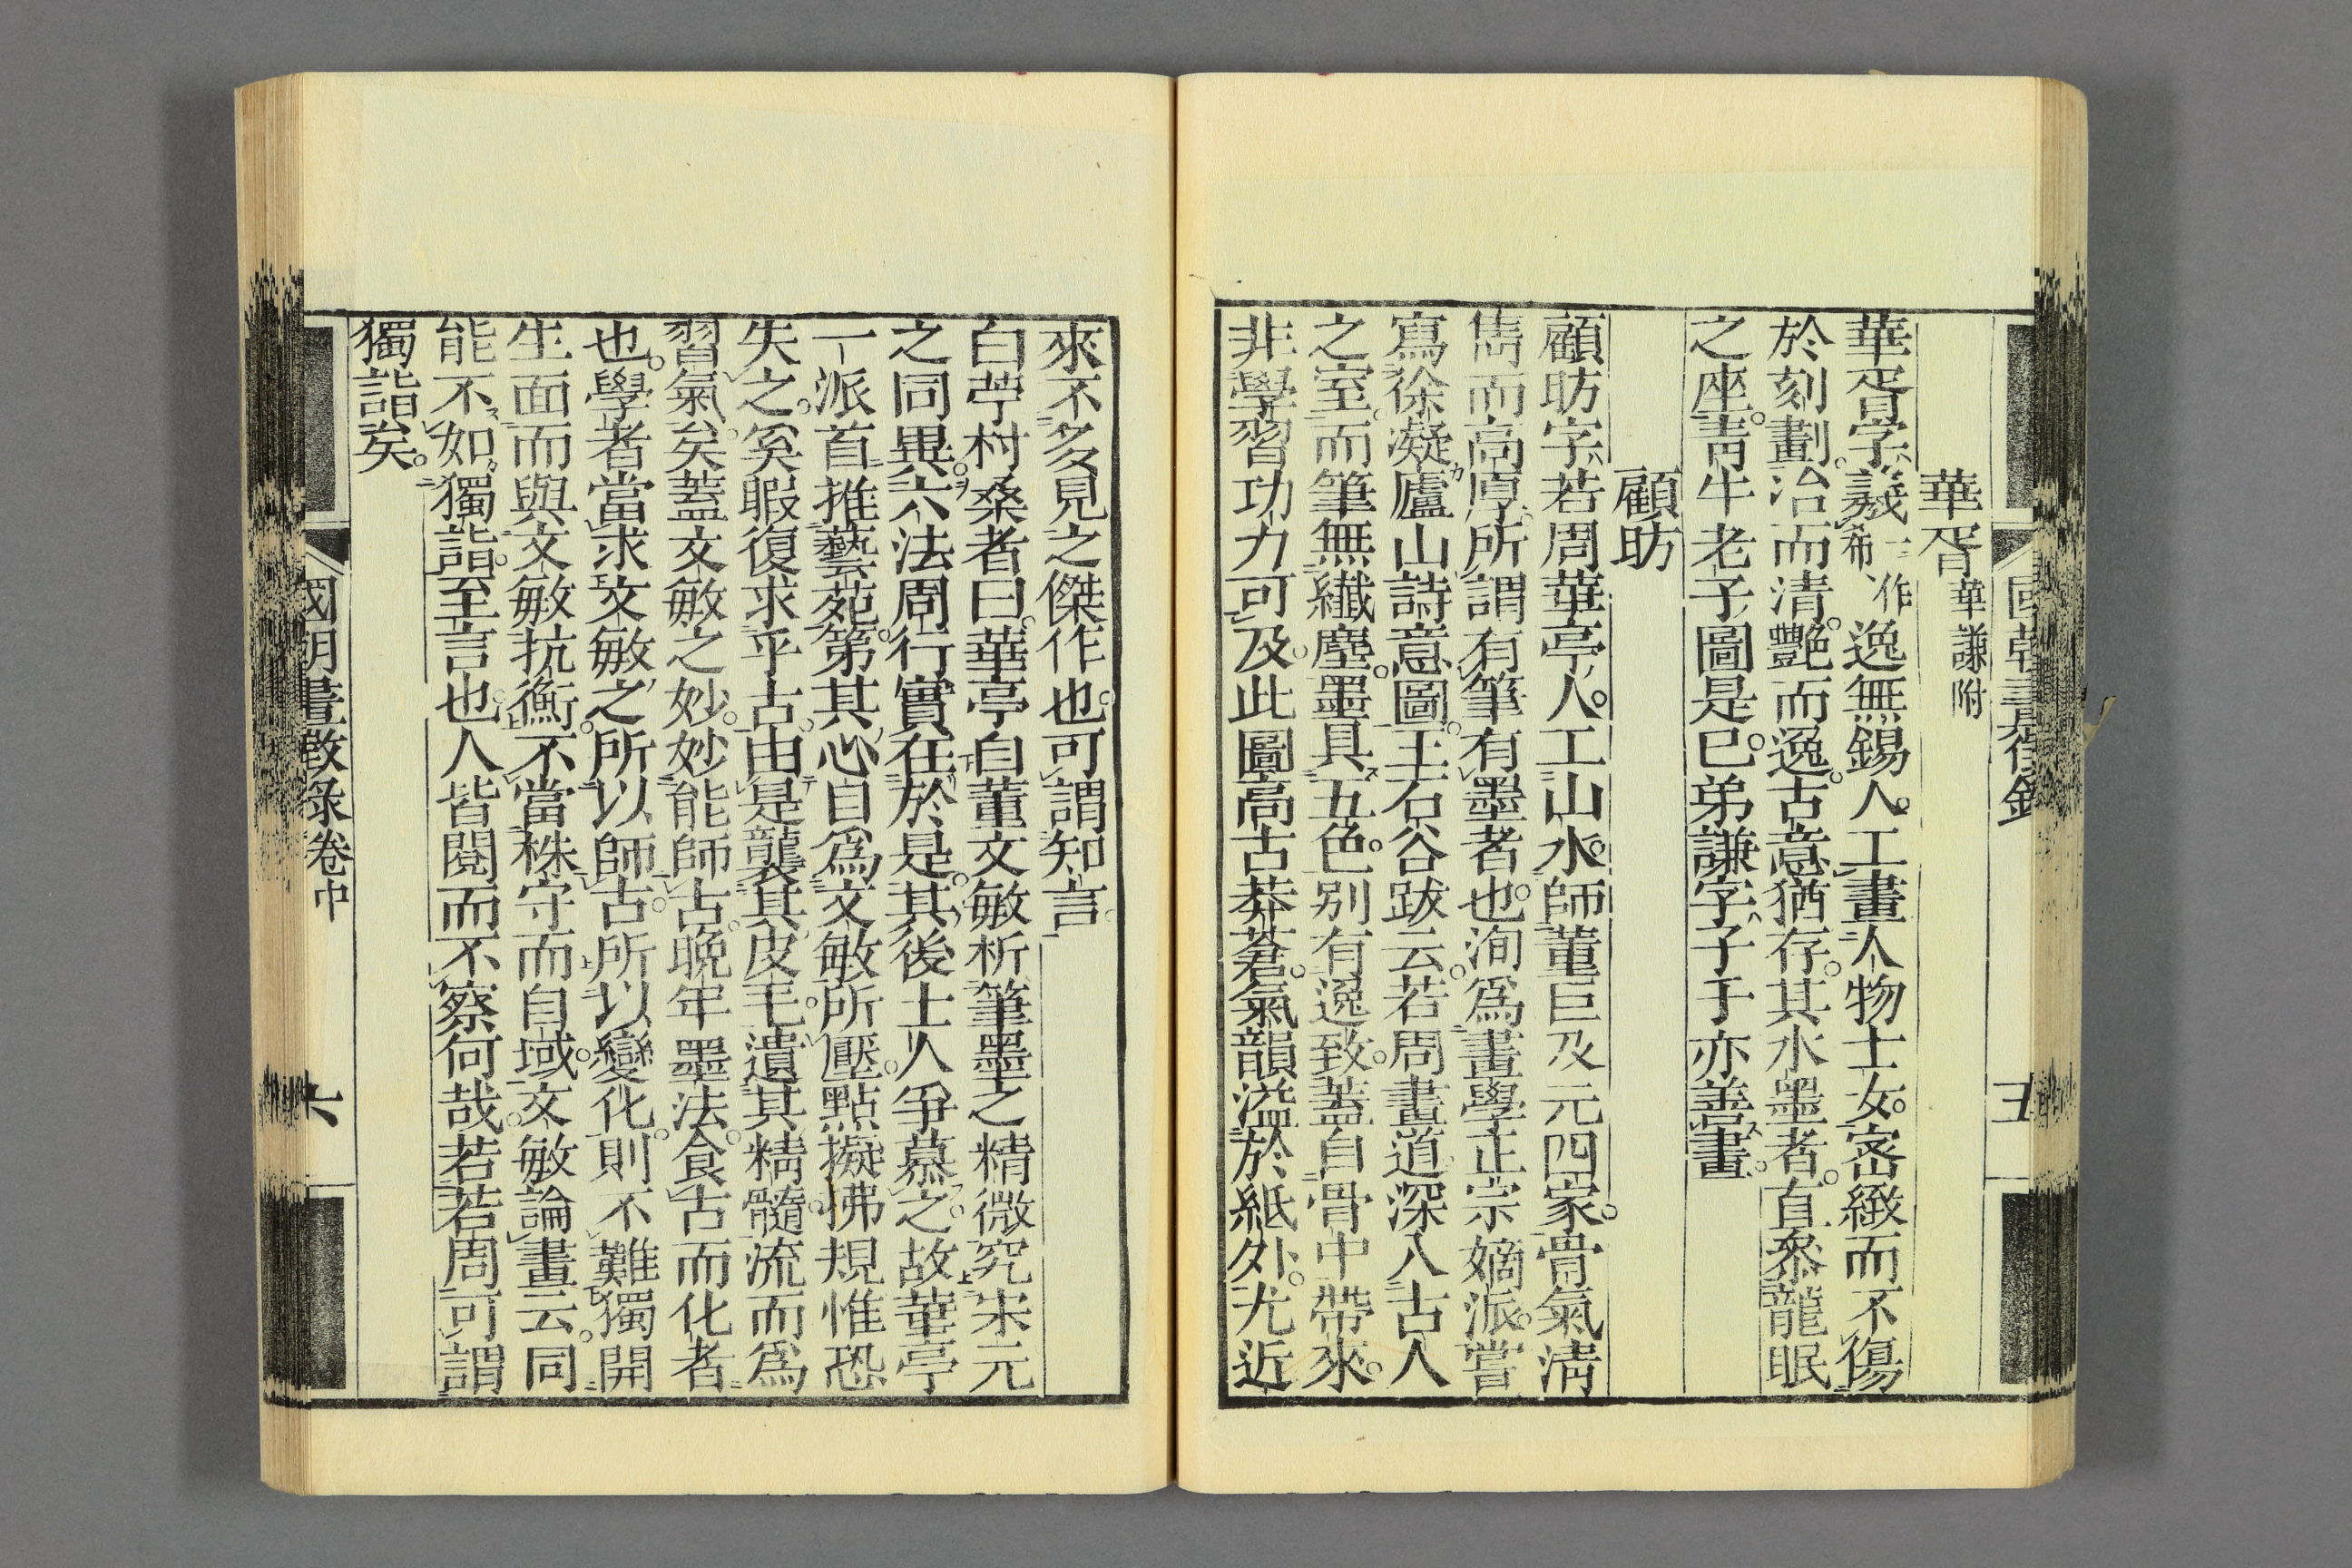 華胥華謙附
華胥字羲一作希逸無錫人。工畫人物士女。宻緻而不傷
於刻劃。冶而清。艷而逸。古意猶存。其水墨者。直叅龍眠
之座。青牛老子圖是已。弟謙字子于亦善畫。
顧昉
顧昉字若周華亭人。工山水。師董巨及元四家。骨氣淸
雋而高厚。所謂有筆有墨者也。洵爲畫學正宗嫡派。嘗
寫徐凝廬山詩意圖。王石谷跋云。若周畫道深入古人
之室。而筆無纖塵。墨具五色。別有逸致。蓋自骨中帶來。
非學習功力可及此圖高古莽蒼。氣韻溢於紙外。尤近
來不多見之傑作也。可謂知言。
白苧村桑者曰。華亭自董文敏析筆墨之精微究宋元
之同異。六法周行實在於是。其後士人爭慕之。故華亭
一派首推藝苑。第其心自爲文敏所壓。點擬拂規惟恐
失之。奚暇復求乎古。由是襲其皮毛。遺其精髓。流而爲
習氣矣。蓋文敏之妙。妙能師古。晚年墨法。食古而化者
也。學者當求文敏之所以師古。所以變化。則不難獨開
生面而與文敏抗衡。不當株守而自域。文敏論畫云。同
能不如獨詣。至言也。人皆閱而不察何哉。若若周可謂
獨詣矣。
國朝畫徵錄
五
國朝畫徵录卷中
六